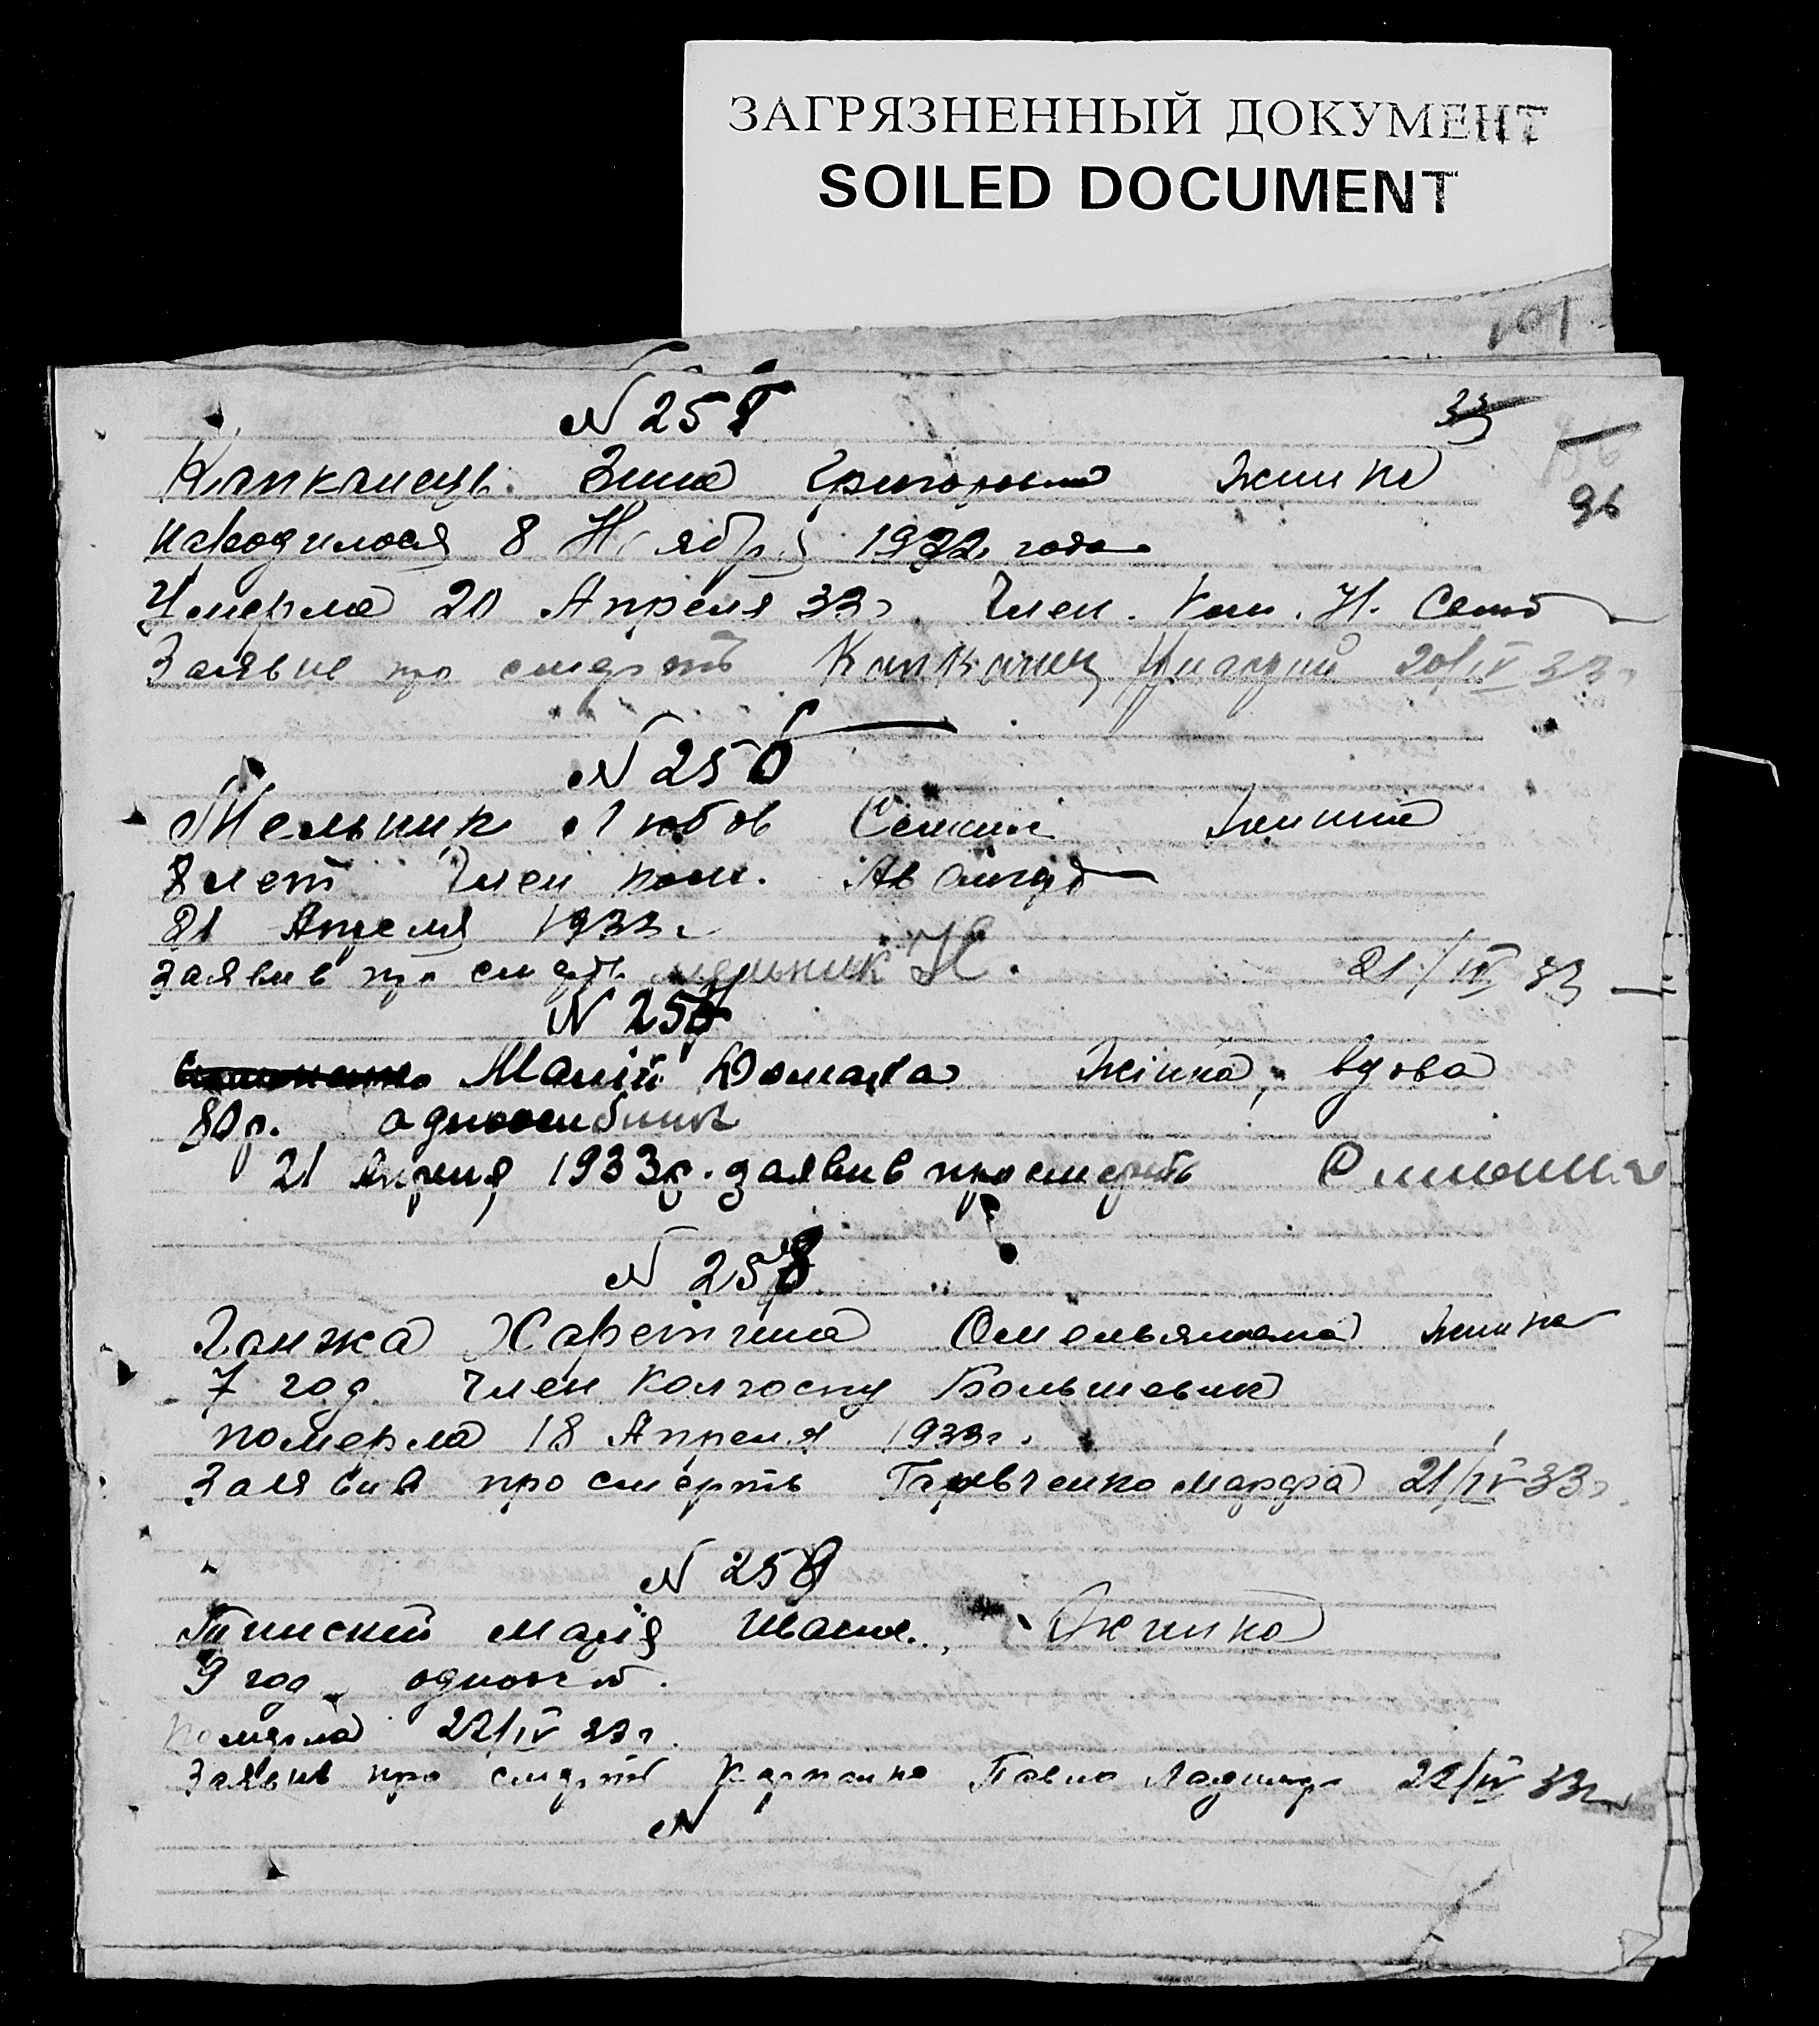 ЗАГРЯЗНЕННЫЙ ДОКУМЕНТ
SOILED DOCUMENT
101
N 255
33
Капканець Зина Григоровна Жинка
96
народилося 8 Ноября 1932 года
Умерла 20 Апреля 33 г. Член. Ком. Н. Село
Заявив про смерть Капканец 20/IV 33 г
N 256
Мельник Любов Семин Жинка
8 лет Член ком. Авангард
21 Апреля 1933 г.
Заявив про смерть мельник Н. 21/IV 33
N 257
Малій Домаха Жінка, вдова
80 р. односибник
21 Апреля 1933 р. заявив про смерть
N 258
Ганжа Харетина Омельяновна Жинка
7 год. Член колгоспу Большевик
померла 18 Апреля 1933 г.
Заявив про смерть Марфа 21/IV 33 г
N 259
Марія Иван. Жинка
9 год. односиб.
Померла 22/IV 33 г.
Заявив про смерть Карпенко Павло 22/IV 33 г
N